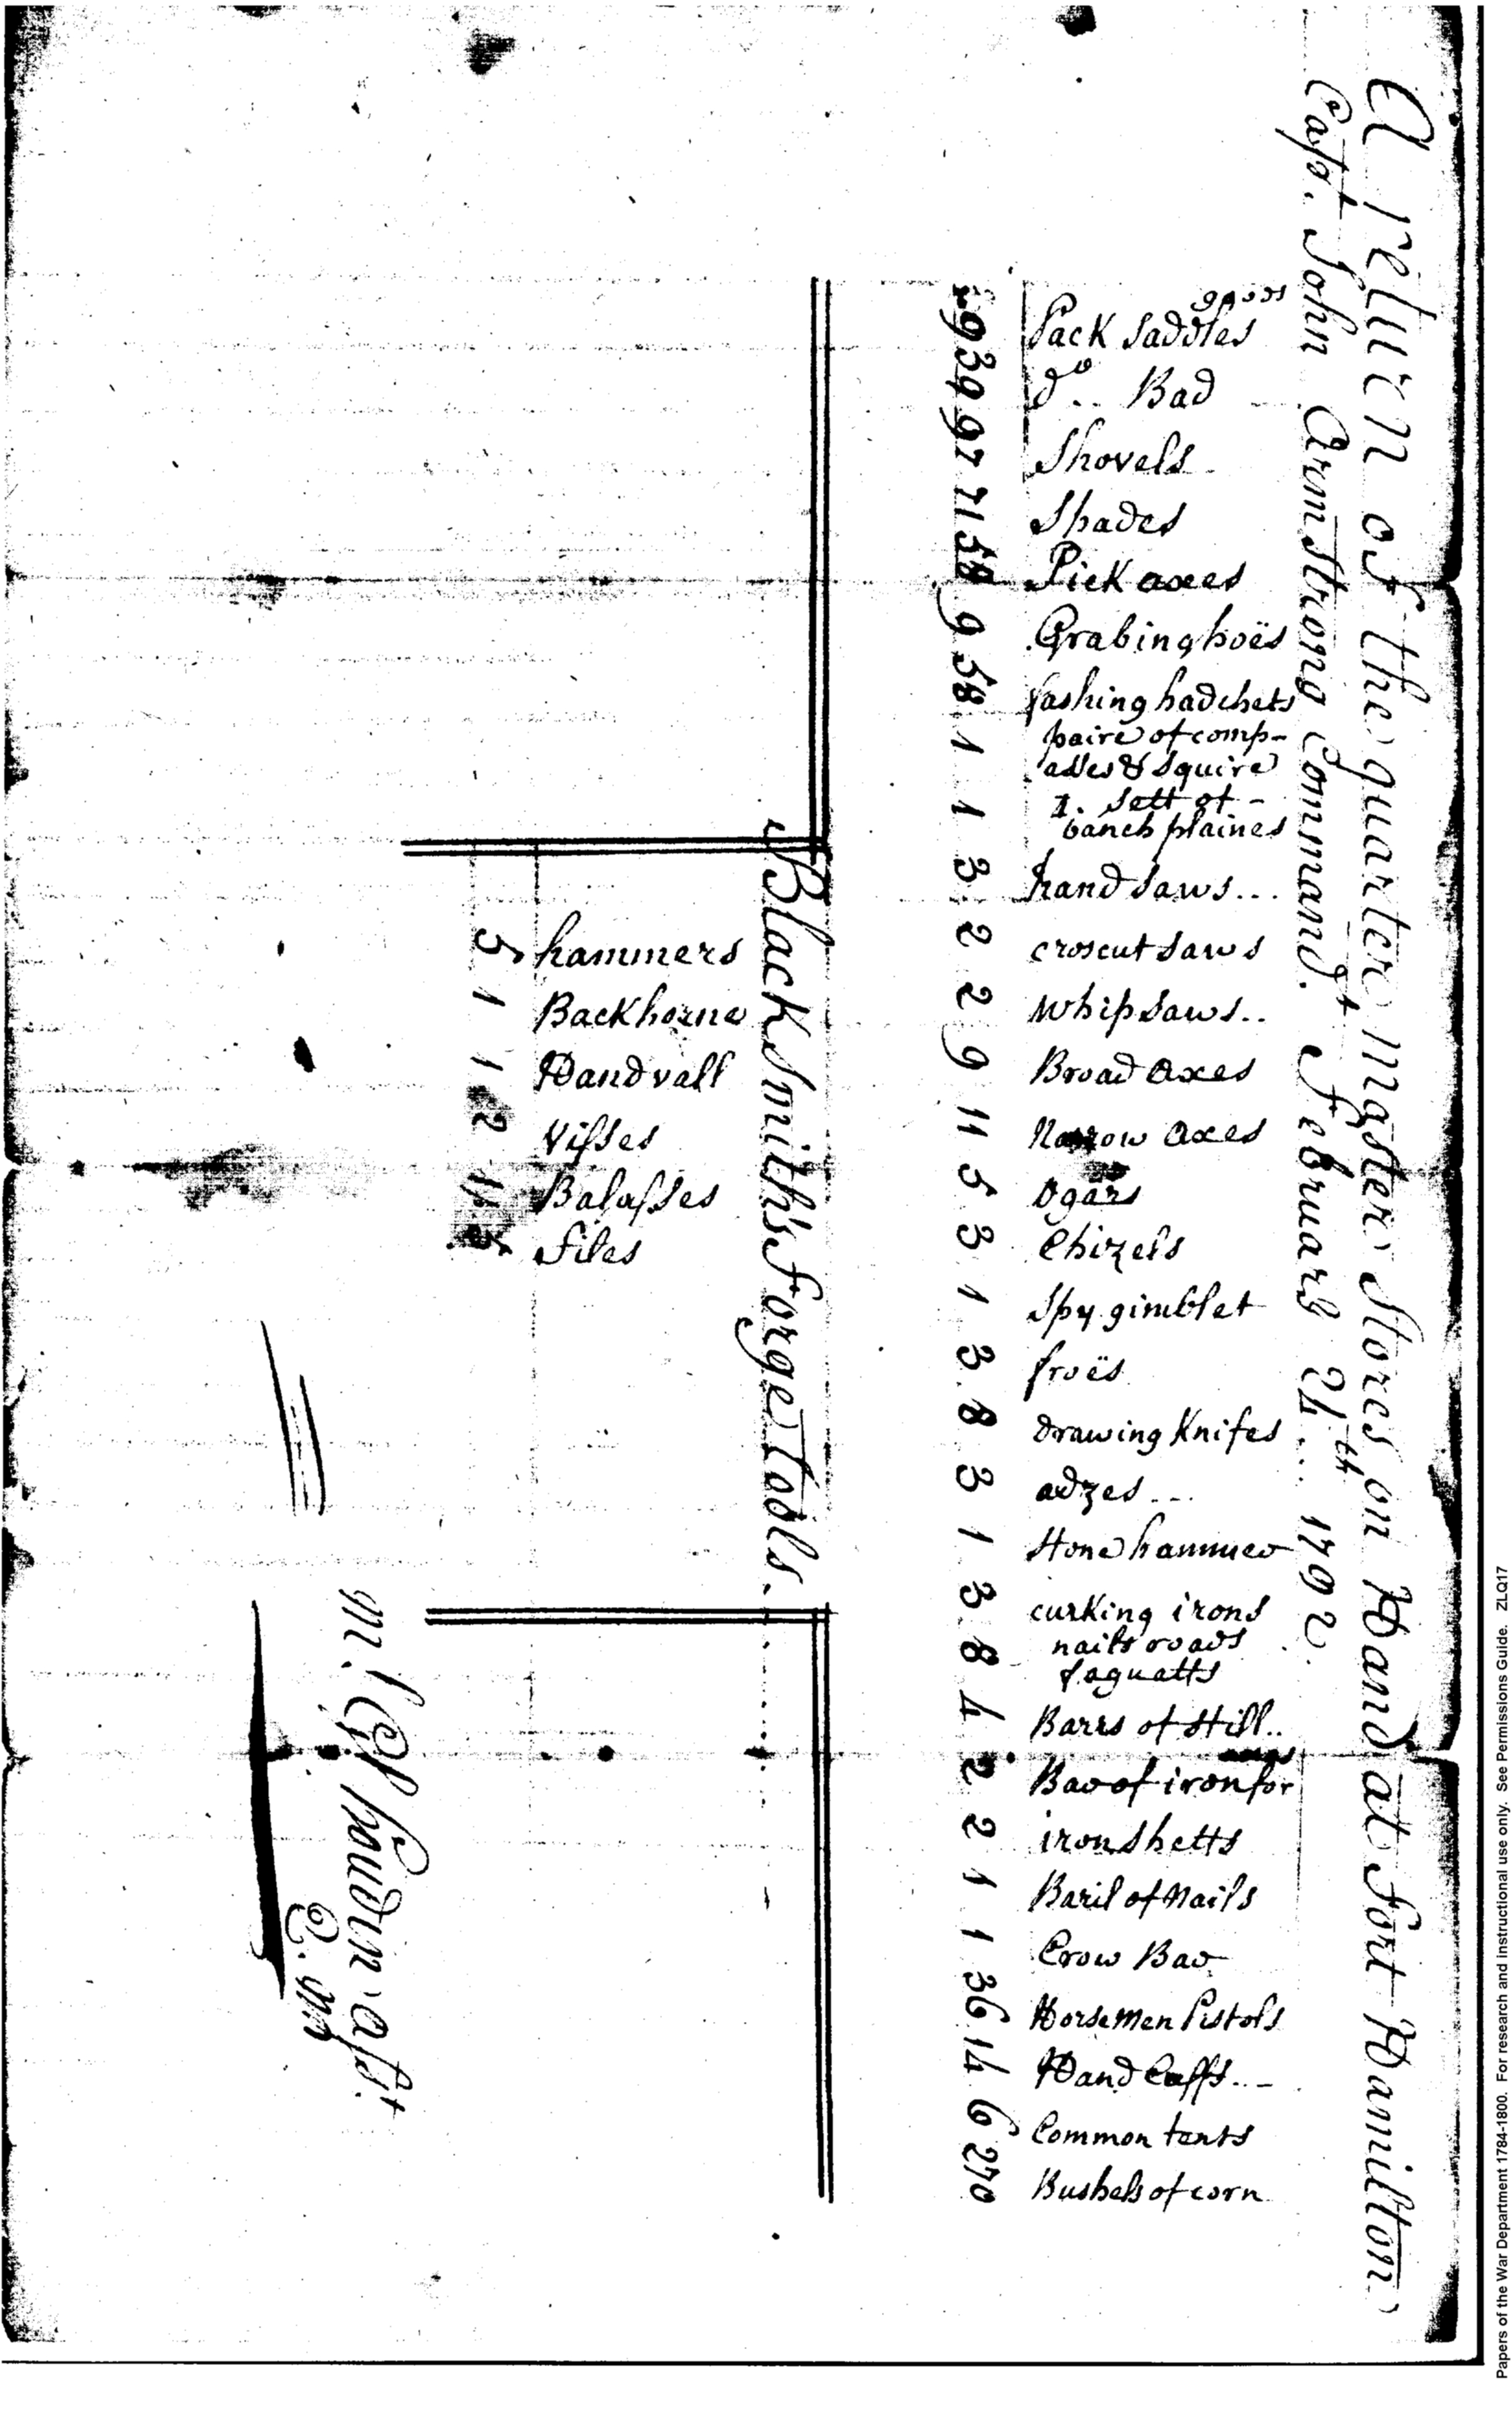 A return of the quarter Master Stores on Hand at Fort Hamilton
Capt. John Armstrong Command.t February 24th... 1792.
goods
Pack Saddles
do .. Bad 39
Shovels 97
Spades 71
Pick axes 58
Grabing hoës 9
fashing hadchets 58
paire of comp-
asses & Squire 1
1. Sett of -
banch plaines 1
hand saws... 3
croscut saws 2
Whip saws.. 2
Broad Axes 9
Narrow Axes 11
Ogars 5
Chizels 3
Spy gimblet 1
froës 3
drawing Knifes 8
adzes... 3
Stone hammer 1
curking irons 3
nails roads
faguatts 8
Barrs of Still.. 4
Bar of iron for 2
iron Shetts 2
Baril of Nails 1
Crow Bar 1
Horsemen Pistols 36
Hand Cuffs..- 14
Common tents 6
Bushels of corn 270
Black Smith's forge Tools.
hammers 5
Backhorne 1
Handvall 1
Visses 2
Balasses
files
M.l Ghoudin asst
Q. M
Papers of the War Department 1784-1800. For research and instructional use only. See Permissions Guide. ZLQ17